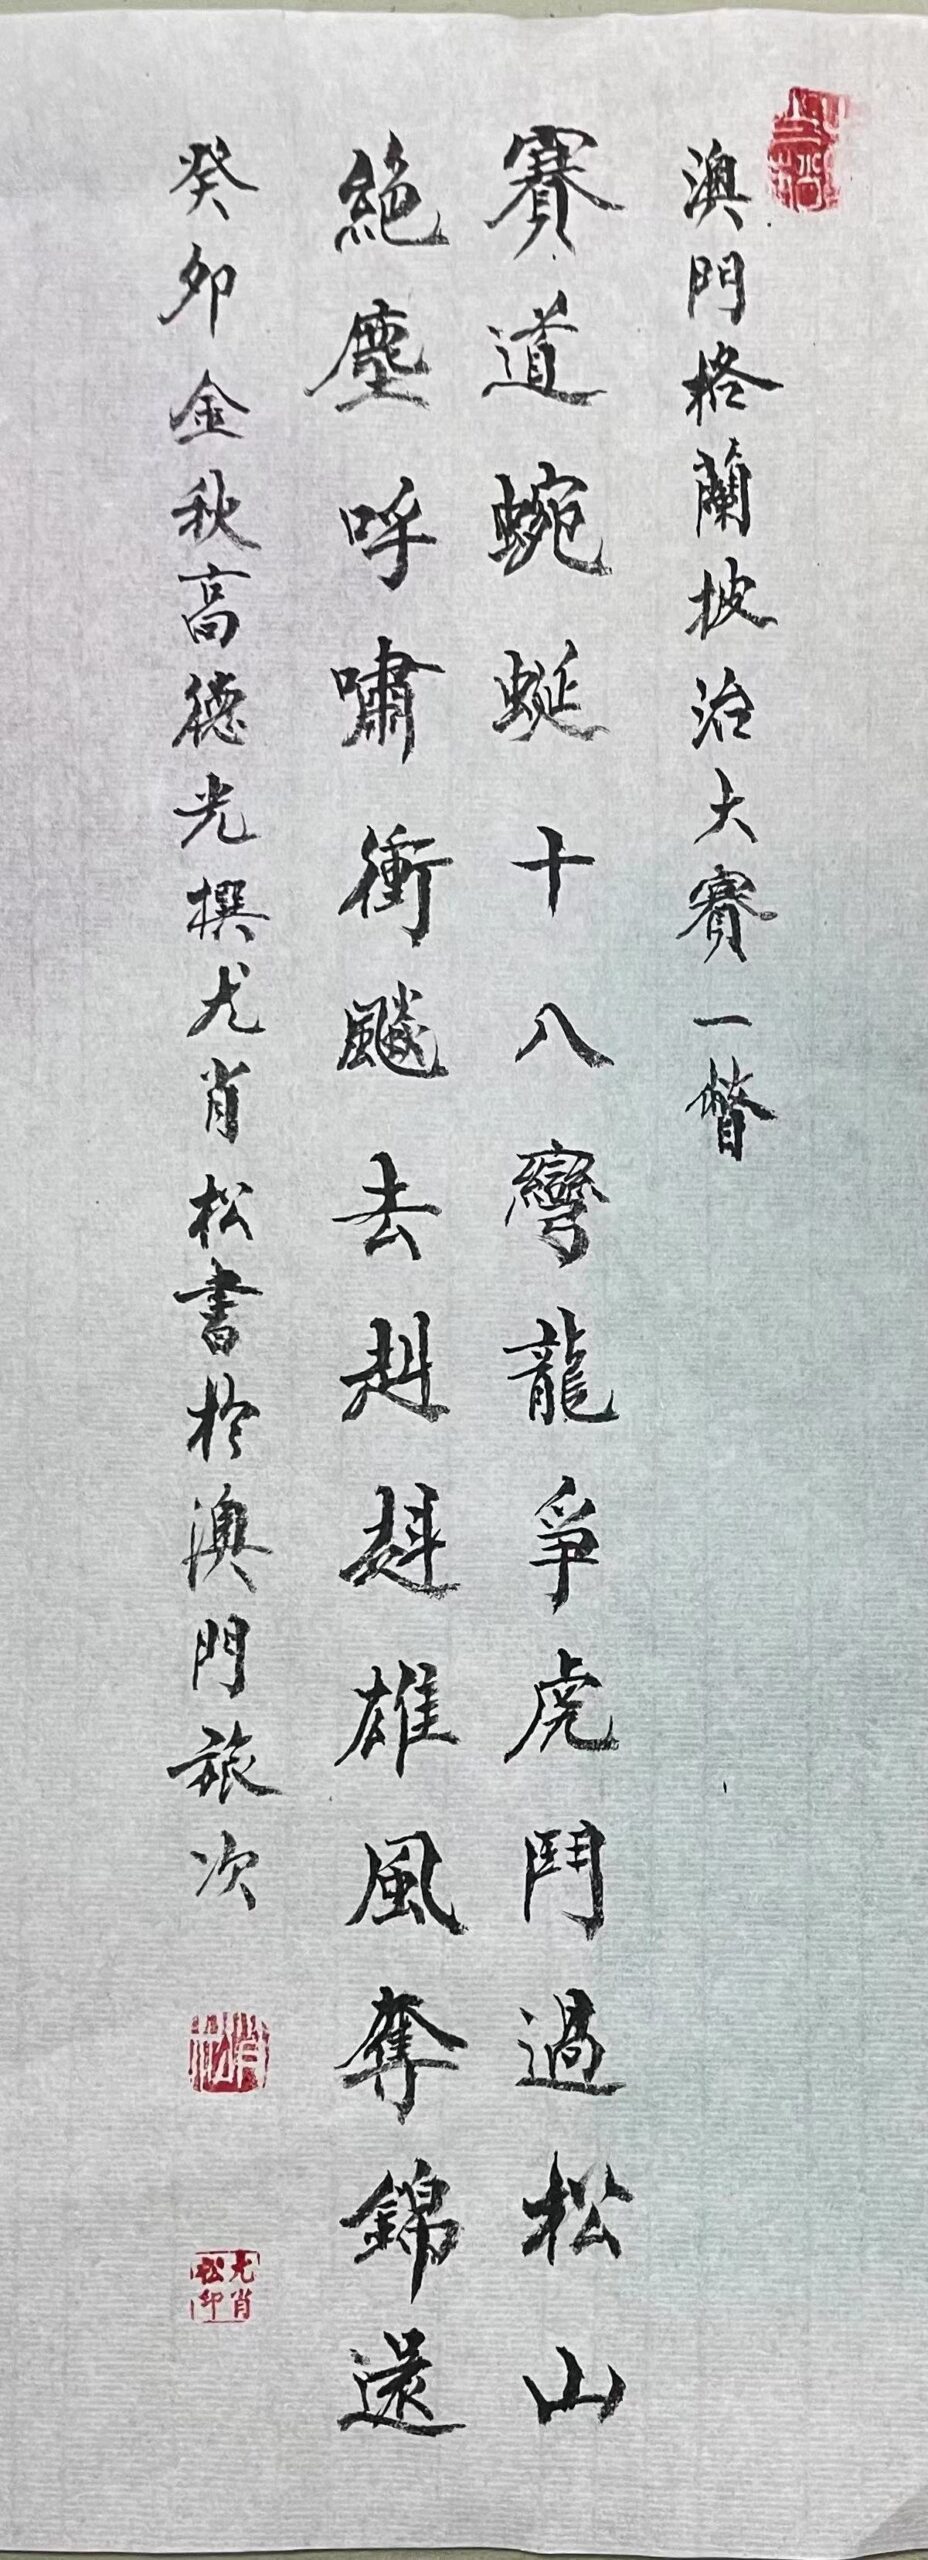 澳門格蘭披治大賽一瞥
賽道蜿蜒十八彎龍爭虎鬥過松山
絕塵呼嘯衝飈去赳赳雄風奪錦還
癸卯金秋高德光撰尤肖松書於澳門旅次
肖松
尤肖松印